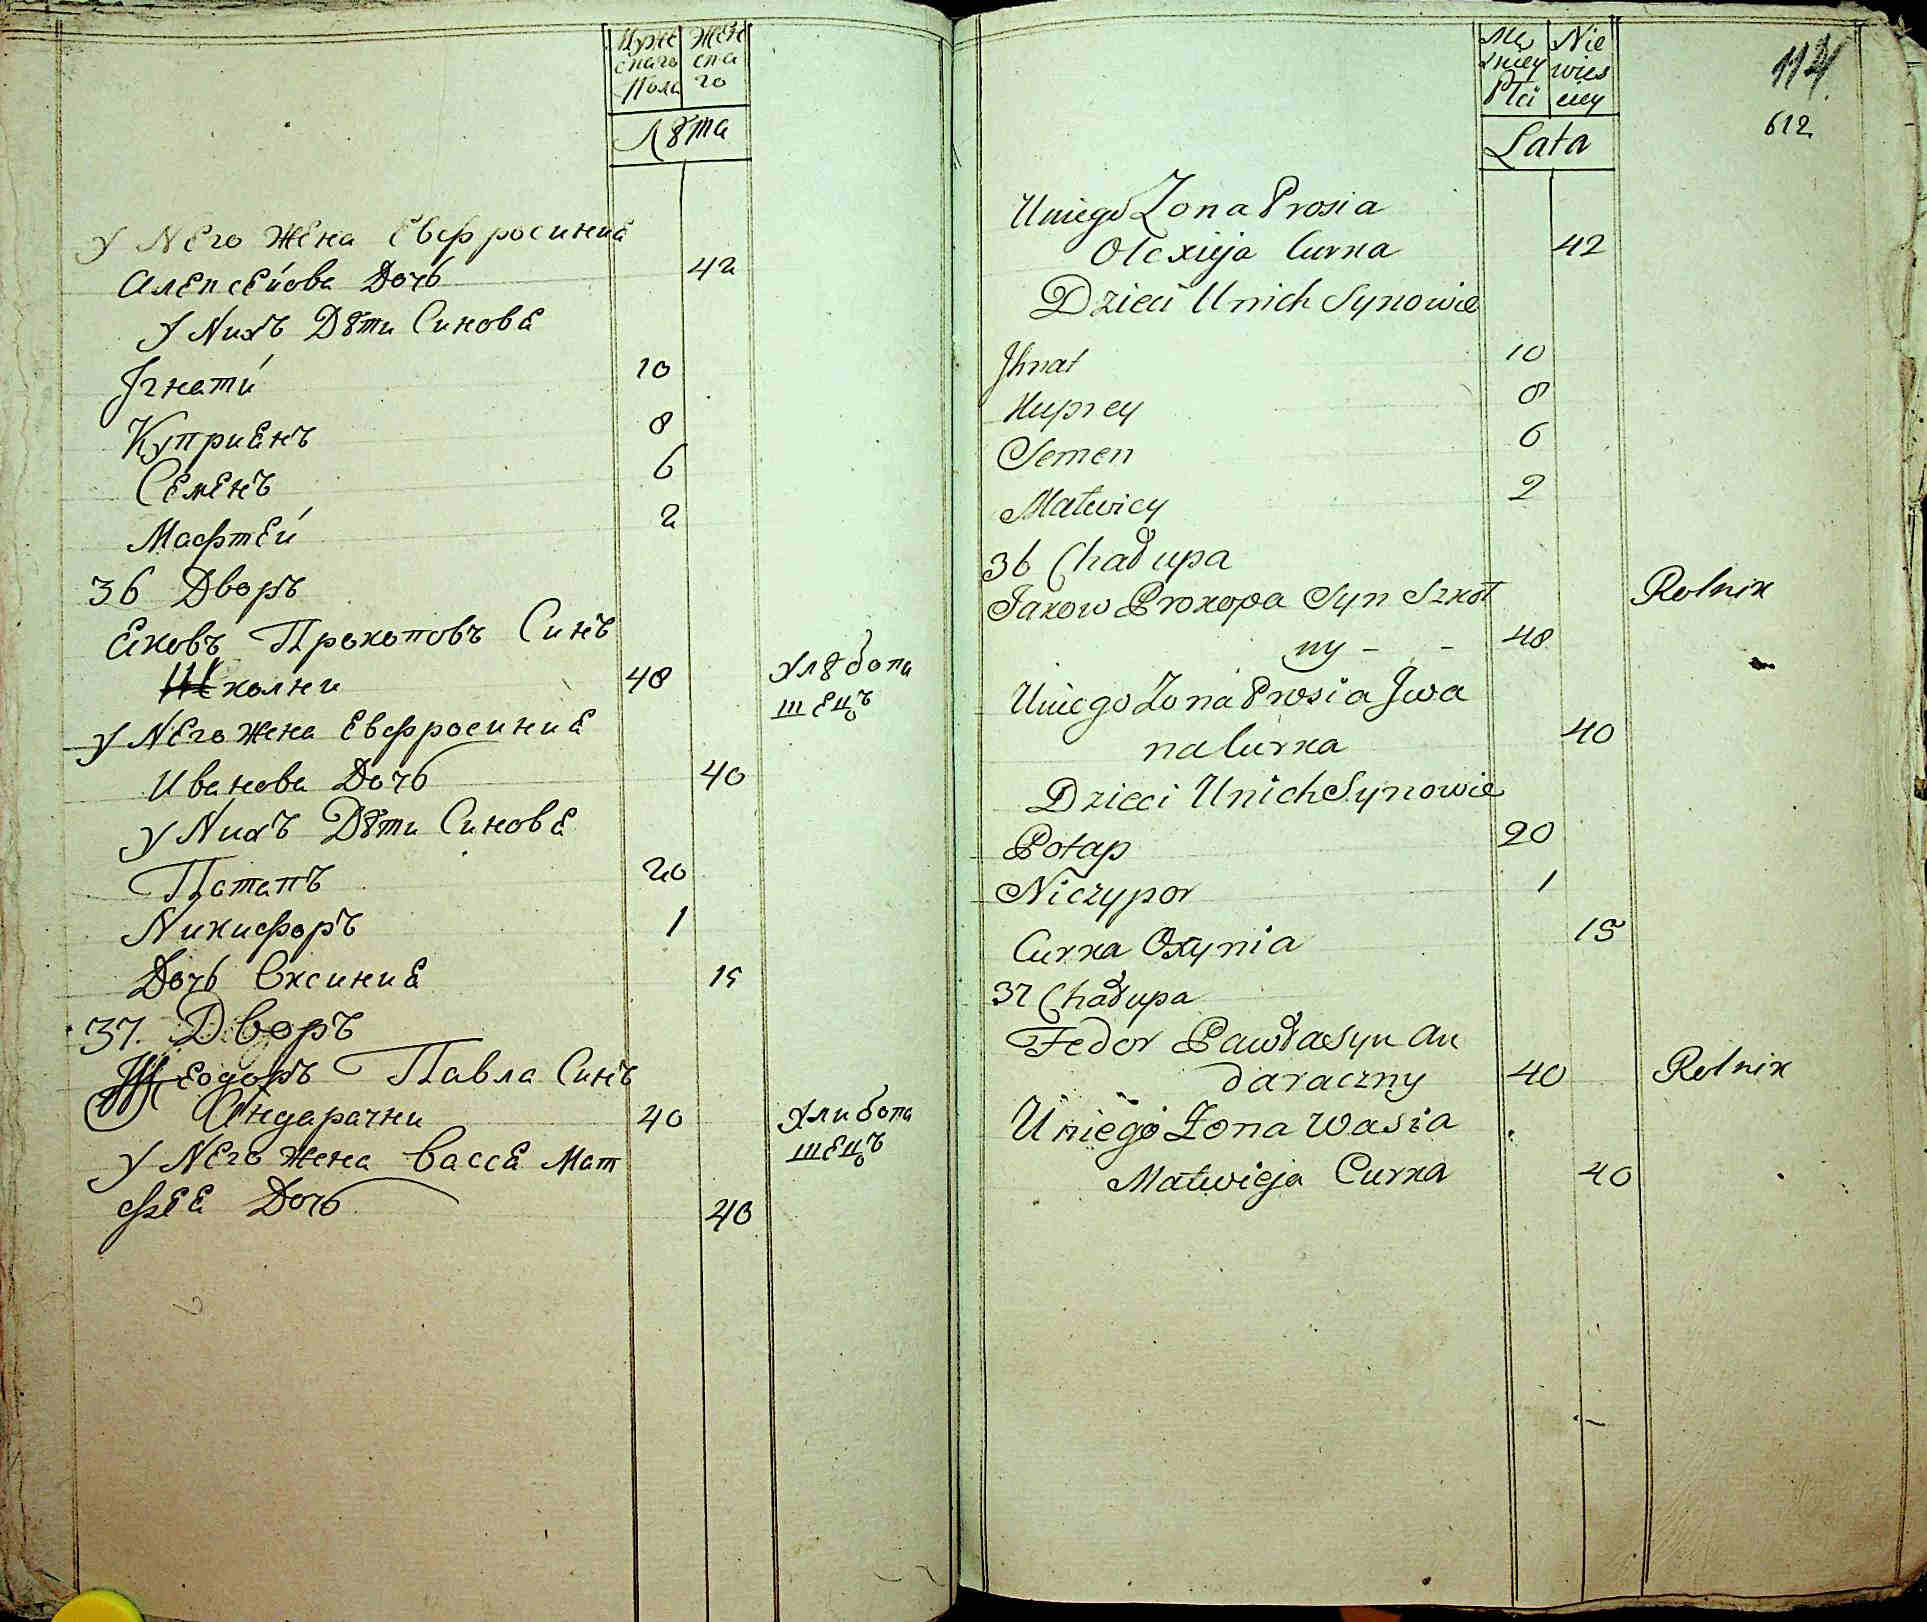 Муже Жен
скаго ска
Пола го
Лѣта
У Него Жена Евфросиниа
Алексеéова Дочь 42
У Нихъ Дѣти Синовѐ
Ігнатий 10
Куприанъ 8
Семенъ 6
Мафтей 2
36 Дворъ
Яковъ Прокоповъ Синъ
Школни 48 Хлѣбопа
шецъ
У Него Жена Евфросиниа
Иванова Дочь 40
У Нихъ Дѣти Синовѐ
Потапъ 20
Никифоръ 1
Дочь Оксиниа 15
37. Дворъ
Феодоръ Павла Синъ
Ондарачни 40 Хлибопа
шецъ
У Него Жена Васса Мат
фея Дочь 40
Mę Nie
zkiey wies
Płci ciey
Lata
114
612
Uniego Zona Prosia
Olexieja Curka 42
Dzieci Unich Synowie
Jhnat 10
Kuprey 8
Semen 6
Matwiey 2
36 Chałupa
Jakow Prokopa Syn Szkoł Rolnik
ny - - 48
Uniego Zona Prosia Jwa
na Curka 40
Dzieci Unich Synowie
Potap 20
Niczypor 1
Curka Oxynia 15
37 Chałupa
Fedor Pawła Syn An
daraczny 40 Rolnik
Uniego Zona Wasia
Matwieja Curka 40